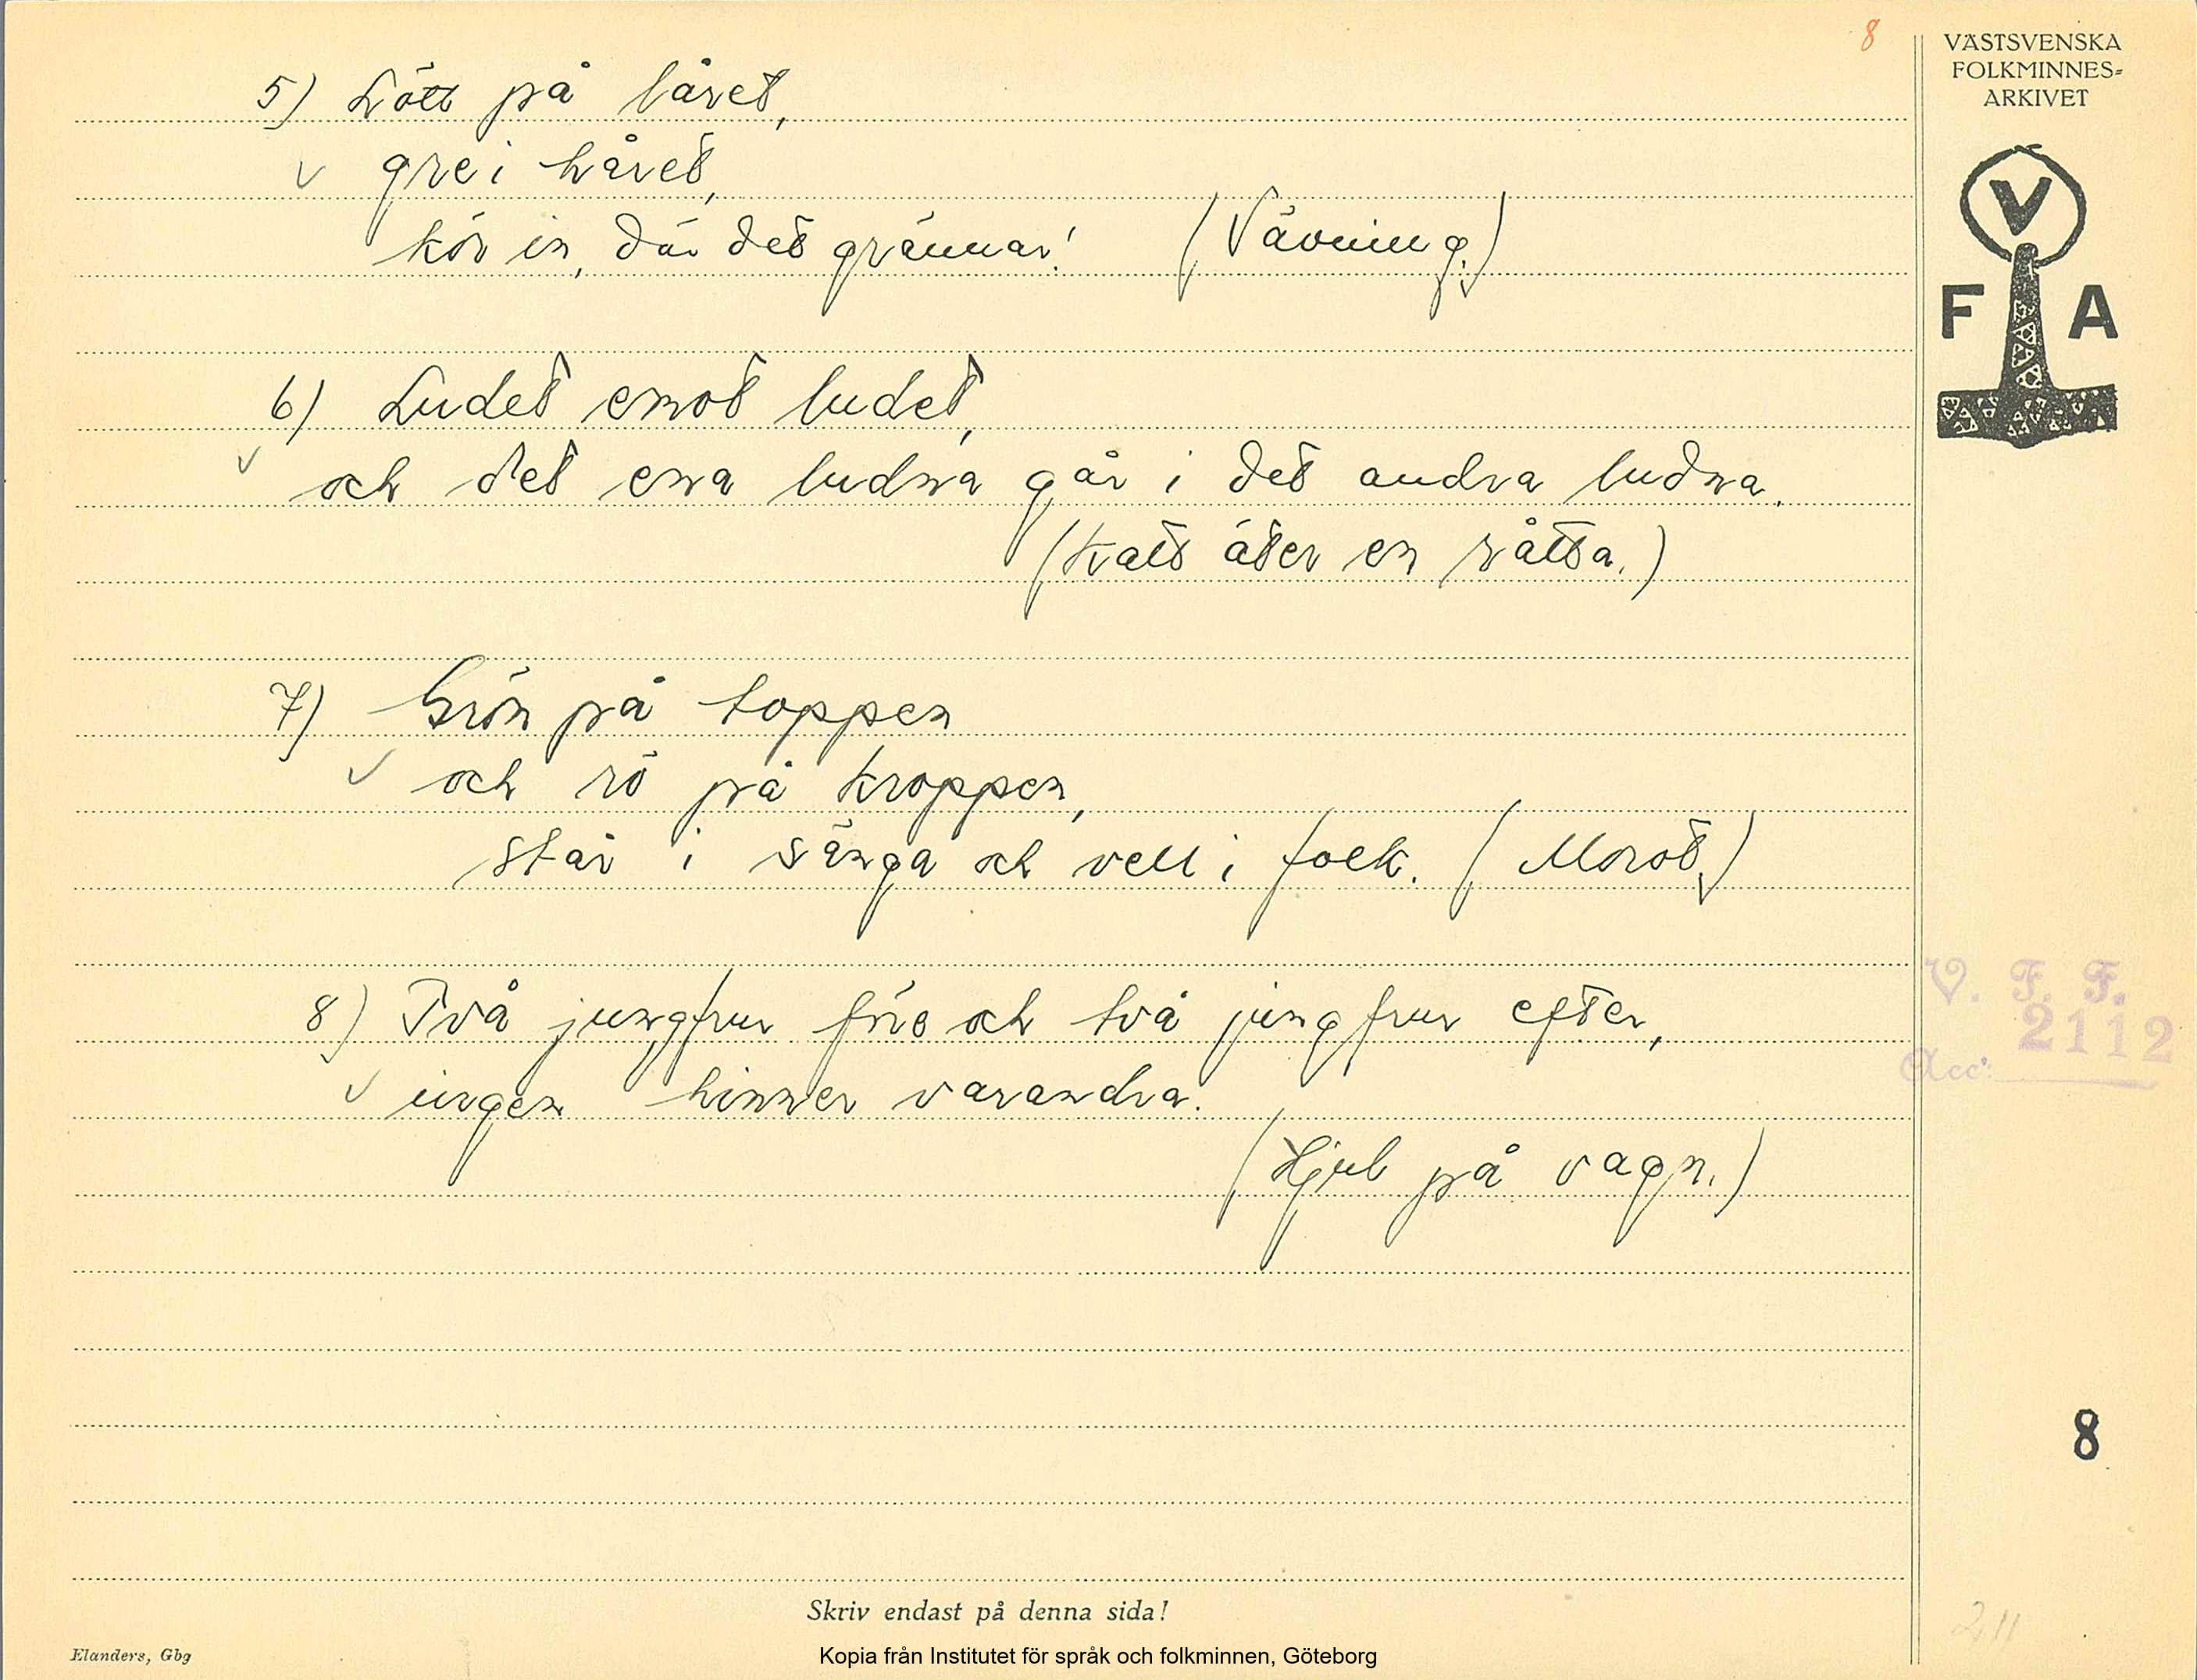 8
VÄSTSVENSKA
FOLKMINNES-
ARKIVET
V
F A
5) Lött på låret,
v gre i håret,
kör in, där det grännar! (Vävning.)
6) Ludet emot ludet,
v och det ena ludna går i det andra ludna.
(Katt äter en råtta.)
7) Grön på toppen
v och rö på kroppen,
står i sänga och vell i folk. (Morot.)
8) Två jungfrur före och två jungfrur efter,
v ingen hinner varandra.
(Hjul på vagn.)
V. F. F.
2112
Acc:
8
211
Skriv endast på denna sida!
Elanders, Gbg
Kopia från Institutet för språk och folkminnen, Göteborg